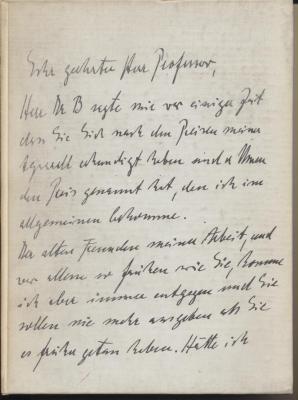 Sehr geehrter Herr Professor,
Herr Dr B sagte mir vor einiger Zeit
dass Sie Sich nach den Preisen meiner
Aquarelle erkundigt haben und er Ihnen
den Preis genannt hat, den ich im
allgemeinen bekomme.
Den alten Freunden meiner Arbeit, und
vor allem so frühen wie Sie, komme
ich aber immer entgegen und Sie
sollen nie mehr ausgeben als Sie
es früher getan haben. Hätte ich